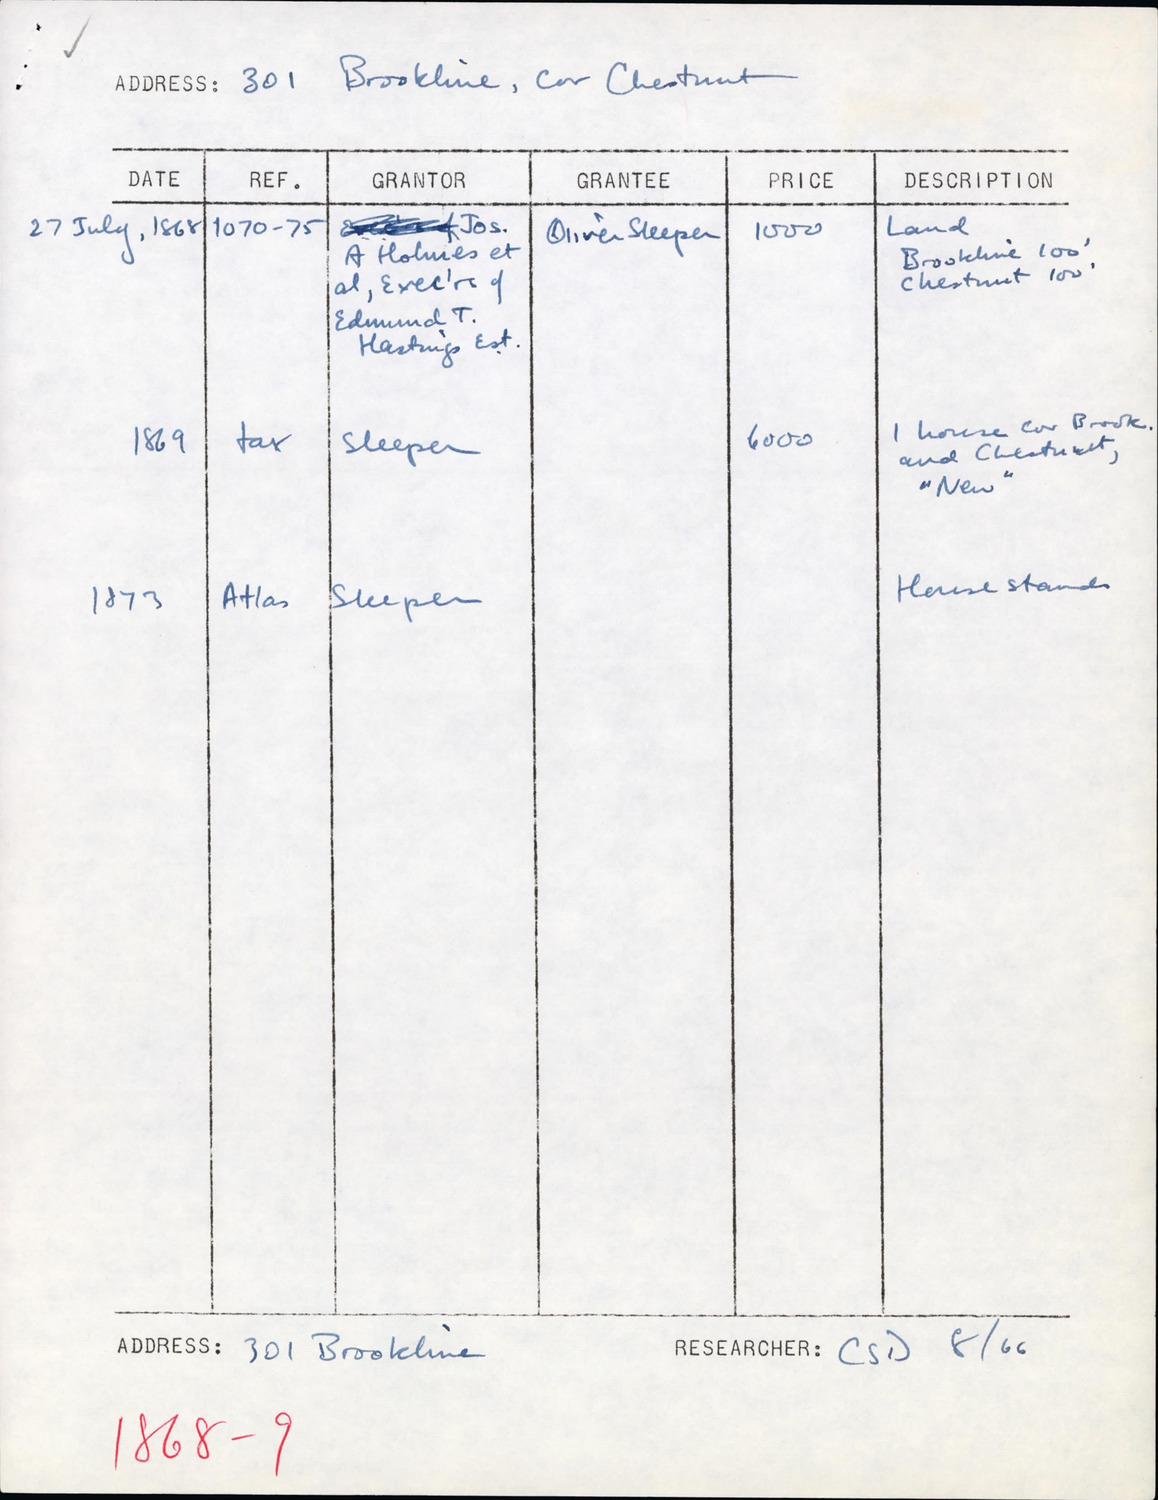 ADDRESS: 301 Brookline, cor Chestnut
DATE REF. GRANTOR GRANTEE PRICE DESCRIPTION
27 July, 1868 1070-75 Jos. Oliver Sleeper 1000 Land
A Holmes et Brookline 100'
al, Exec'rs of Chestnut 100'
Edmund T.
Hastings Est.
1869 tax Sleeper 6000 1 house cor Brook.
and Chestnutt,
"New"
1873 Atlas Sleeper House stands
ADDRESS: 301 Brookline RESEARCHER: CSD 8/66
1868-9